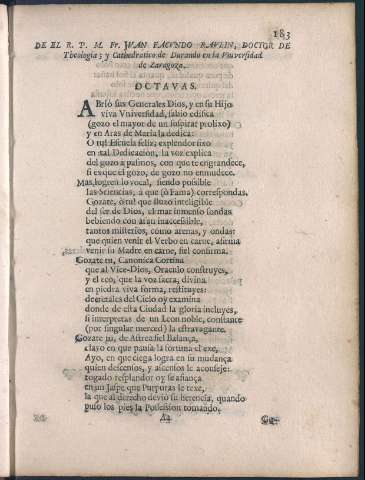 183
DE EL R. P. M. Fr. JUAN FACUNDO RAULIN, DOCTOR DE
Theologia; y Cathedratico de Durando en la Vniversidad
de Zaragoza.
OCTAVAS.
ABrió sus Generales Dios, y en su Hijo
viva Vniversidad, sabio edifica
(gozo el mayor de un suspirar prolixo)
y en Aras de Maria la dedica:
O tu! Escuela feliz, explendor fixo
en tal Dedicacion, la voz explica
del gozo a pasmos, con que te engrandece,
si es que el gozo, de gozo no enmudece.
Mas, logren lo vocal, siendo possible
las Sciencias, à que (ò Fama) correspondas,
Gozate, ò tu! que fluxo inteligible
del ser de Dios, el mar inmenso sondas
bebiendo con afan inaccessible,
tantos misterios, como arenas, y ondas:
que quien venir el Verbo en carne, afirma
venir su Madre en carne, fiel confirma.
Gozate tu, Canonica Cortina
que al Vice-Dios, Oraculo construyes,
y el eco, que la voz sacra, divina
en piedra viva forma, restituyes:
decretales del Cielo oy examina
donde de esta Ciudad la gloria incluyes,
si interpretas de un Leon noble, constante
(por singular merced) la estravagante.
Gozate tu, de Astrea fiel Balança,
clavo en que pausa la fortuna el exe,
Ayo, en que ciega logra en su mudança
quien descensos, y ascensos le aconseje:
rogado resplandor oy se afiança
en un Jaspe que Purpuras le texe,
la que al derecho deviò su herencia, quando
puso los pies la Possession tomando.
Aa